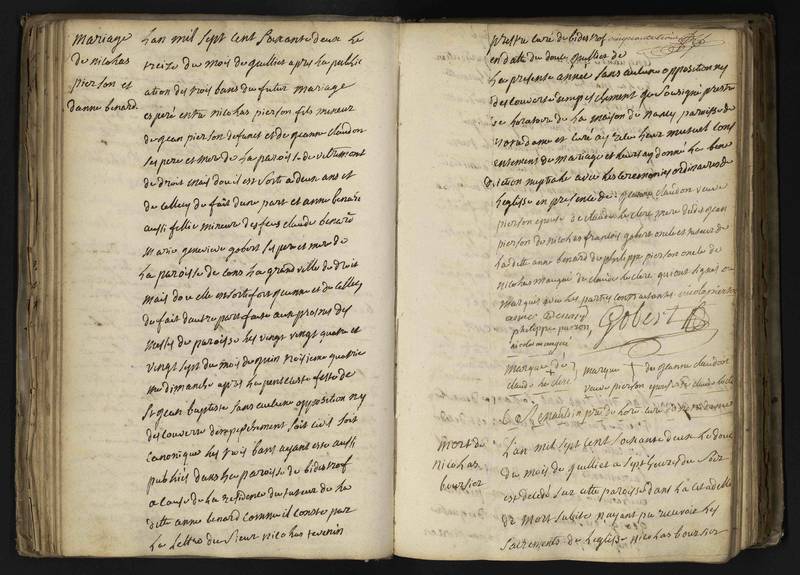 mariage
de nicolas
pierson et
danne benard
Lan mil sept cent soixante deux le
treize du mois de juilliet apres la public
ation des trois bans du futur mariage
espéré entre nicolas pierson fils mineur
de jean pierson defunct et de jeanne claudon
ses pere et mere de la paroisse de
de droit mais dou il est sorti a deux ans et
de celle cy de fait dune part et anne benard
aussi fille mineur des feus claude benard
marie genevieve gobert ses pere et mere de
la paroisse de cons la grand ville de droit
mais dou elle est sortie fort jeunne et de celle cy
de fait dautre part faite aux prosnes des
messes de paroisse les vingt vingt quatre et
vingt sept du mois de juin troisieme quatrie
me dimanche apres la pentecoste feste de
st jean baptiste sans aucune opposition ny
descouverte dempeschement soit civil soit
canonique les trois bans ayant esté aussi
publiés dans la paroisse de bidestrof
a cause de la residence du tuteur de la
ditte anne benard comme il conste par
la lettre du sieur nicolas
prestre curé de bidestrof
en date du douze juilliet de
la presente année sans aucune opposition ny
descouverte dempeschement que soussigné prestre
de loratoire de la maison de nancy paroisse de
notre dame et curé ais receu leur mutuel cons
entement de mariage et leurs ay donné la bene
diction nuptiale avec les ceremonies ordinaires de
leglisse en presence de jeanne claudon veuve
pierson epouse de claude leclere mere dudit jean
pierson de nicolas francois gobert oncle et tuteur de
laditte anne benard de philippe pierson oncle de
nicolas mangué de claude leclere qui ont signés ou
marqués avec les parties contractantes nicola pierson
anne Benard
philippe pierson
Gobert
nicola mangué
marque de
claude leclere
marque de jeanne claudon
veuve pierson epouse de claude lecle
prestre de lore curé de notre dame
Mort de
nicolas
boursier
Lan mil sept cent soixante deux le douze
du mois de juilliet a sept heures du soir
est decedé sur cette paroisse dans la citadelle
de mort subite nayant pu recevoir les
sacrements de leglisse nicolas boursier